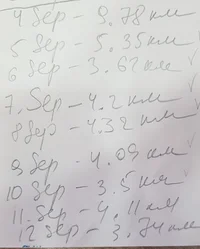 4 Sep - 3.78 км
5 Sep - 5.35 км
6 Sep - 3.67 км
7. Sep - 4.2 км
8 Sep - 4.32 км
9 Sep - 4.09 км
10 Sep - 3.5 км
11. Sep - 4.11 км
12 Sep - 3.74 км